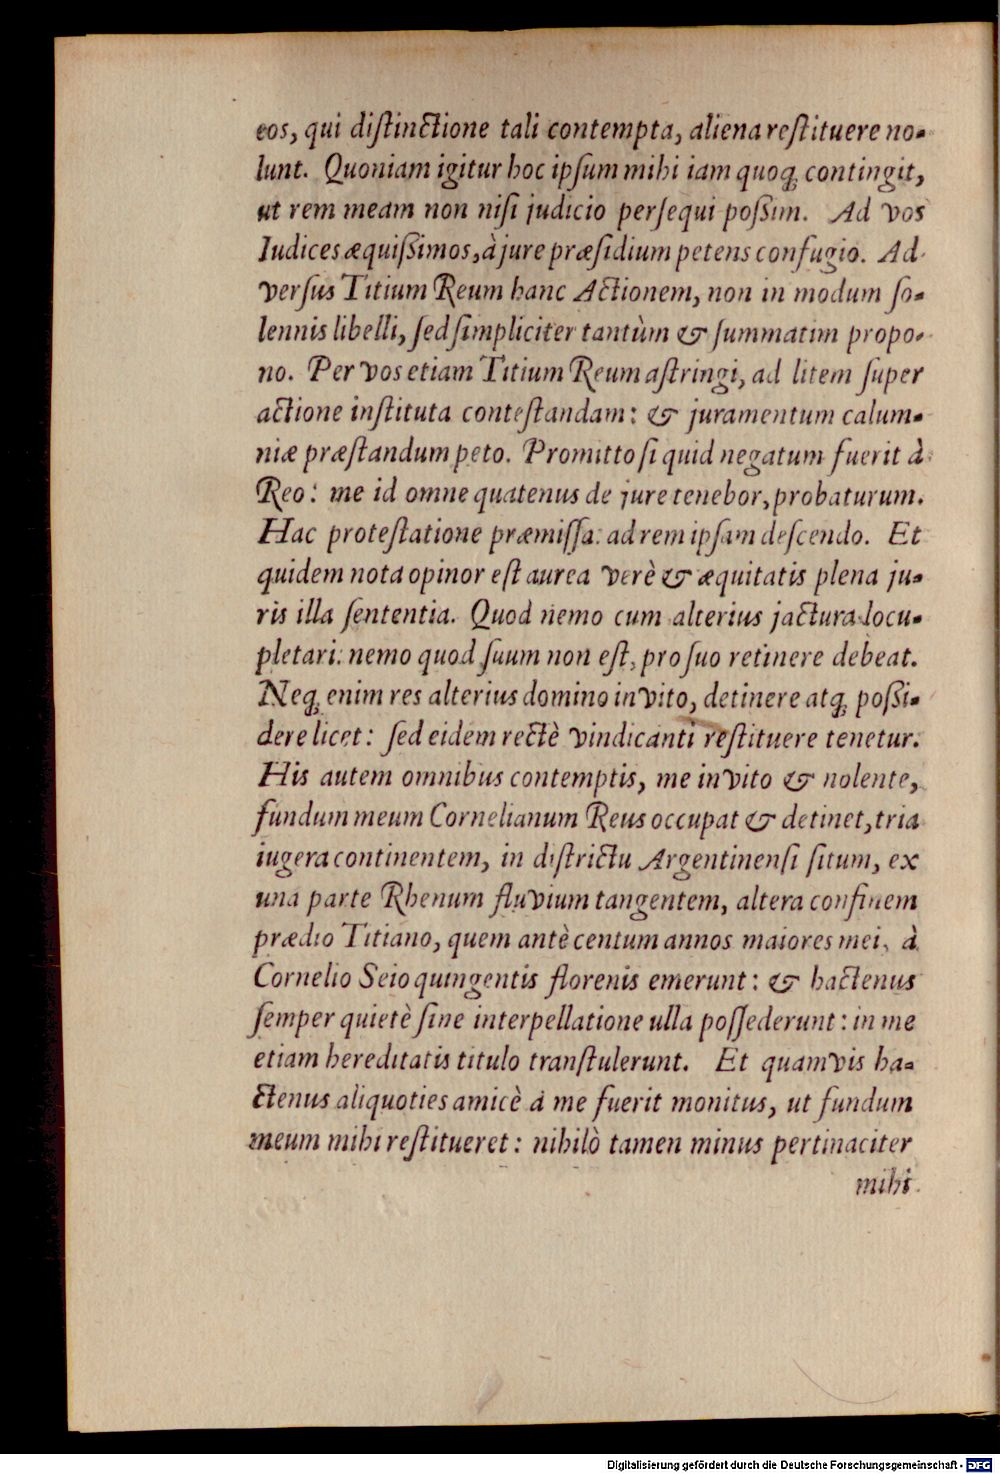 eos, qui diſtinctione tali contempta, aliena reſtituere no-
lunt. Quoniam igitur hoc ipſum mihi iam quoq́; contingit,
ut rem meam non niſi judicio perſequi poſſim. Ad vos
Iudices æquiſſimos, à jure præſidium petens confugio. Ad-
verſus Titium Reum hanc Actionem, non in modum ſo-
lennis libelli, ſed ſimpliciter tantùm & ſummatim propo-
no. Per vos etiam Titium Reum aſtringi, ad litem ſuper
actione inſtituta conteſtandam: & juramentum calum-
niæ præſtandum peto. Promitto ſi quid negatum fuerit à
Reo: me id omne quatenus de jure tenebor, probaturum.
Hac proteſtatione præmiſſa: ad rem ipſam deſcendo. Et
quidem nota opinor eſt aurea verè & æquitatis plena ju-
ris illa ſententia. Quod nemo cum alterius jactura locu-
pletari: nemo quod ſuum non eſt, pro ſuo retinere debeat.
Neq́; enim res alterius domino invito, detinere atq́; poſſi-
dere licet: ſed eidem rectè vindicanti reſtituere tenetur.
His autem omnibus contemptis, me invito & nolente,
fundum meum Cornelianum Reus occupat & detinet, tria
iugera continentem, in diſtrictu Argentinenſi ſitum, ex
una parte Rhenum fluvium tangentem, altera confinem
prædio Titiano, quem antè centum annos maiores mei, à
Cornelio Seio quingentis florenis emerunt: & hactenus
ſemper quietè ſine interpellatione ulla poſſederunt: in me
etiam hereditatis titulo tranſtulerunt. Et quamvis ha-
ctenus aliquoties amicè à me fuerit monitus, ut fundum
meum mihi reſtitueret: nihilò tamen minus pertinaciter
mihi
Digitalisierung gefördert durch die Deutsche Forschungsgemeinschaft - DFG